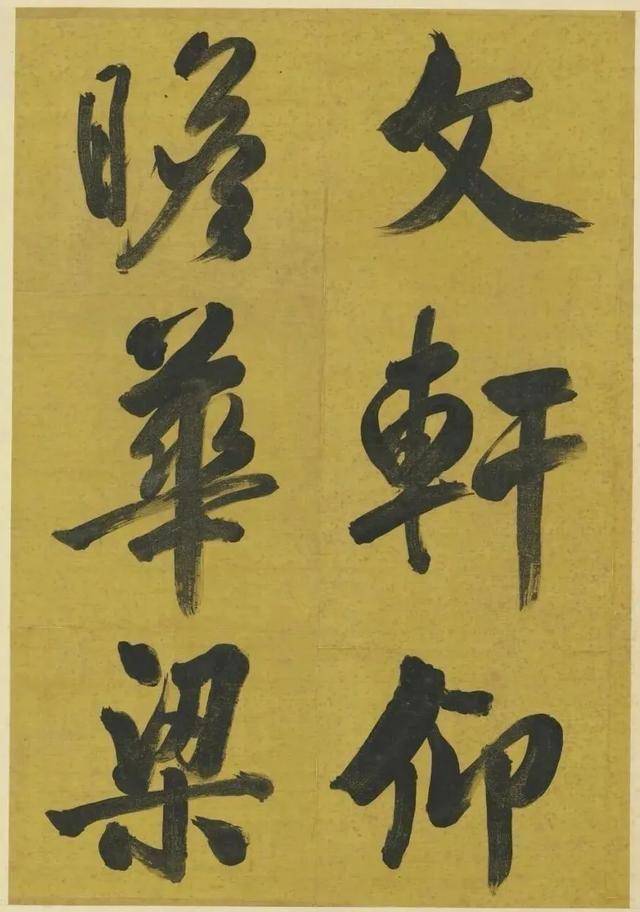 文軒仰
瞻華梁